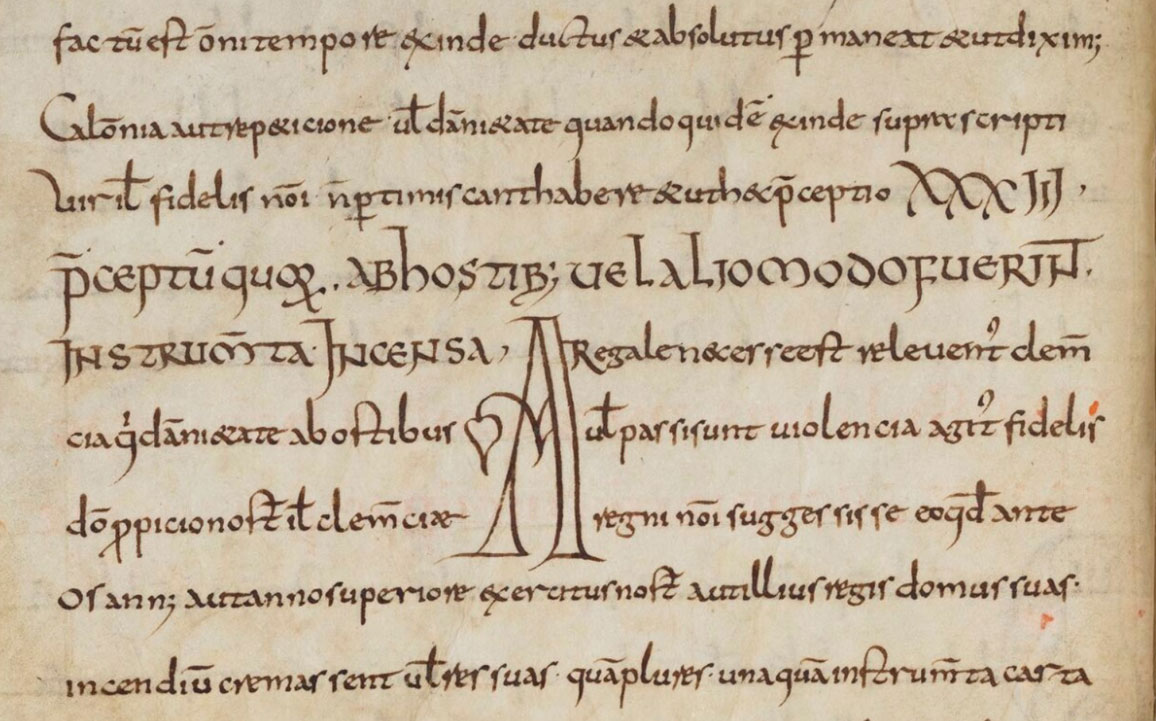 factū est om̄i tempore & exinde ductus & absolutus p̱maneat & ut diximꝰ
Calōnia aut repeticione ul̄ dām̄&ate quando quidē exinde suprascripti
uir il̄ fidelis nōi n̄ pertimiscant habere & uth& p̄ceptio XXXIII
p̄ceptū quoꝝ. ab hostib; uel alio modo fuerin̄t.
instrum̄ta incensa, A
Regale nécesse est releuent᷒ clem̄
cia q̇ dām̄&ate ab ostibus ul̄ passi sunt uiolencia agit᷒ fidelis
dō p̱picio nost̄ il̄ clem̄ciæ regni nōi suggessisse eo qd̄ ante
os ann; aut anno superiore exercitus nost̄ aut illius regis domus suas
incendiū cremassent ul̄ res suas quāplures una quā instrum̄ta carta